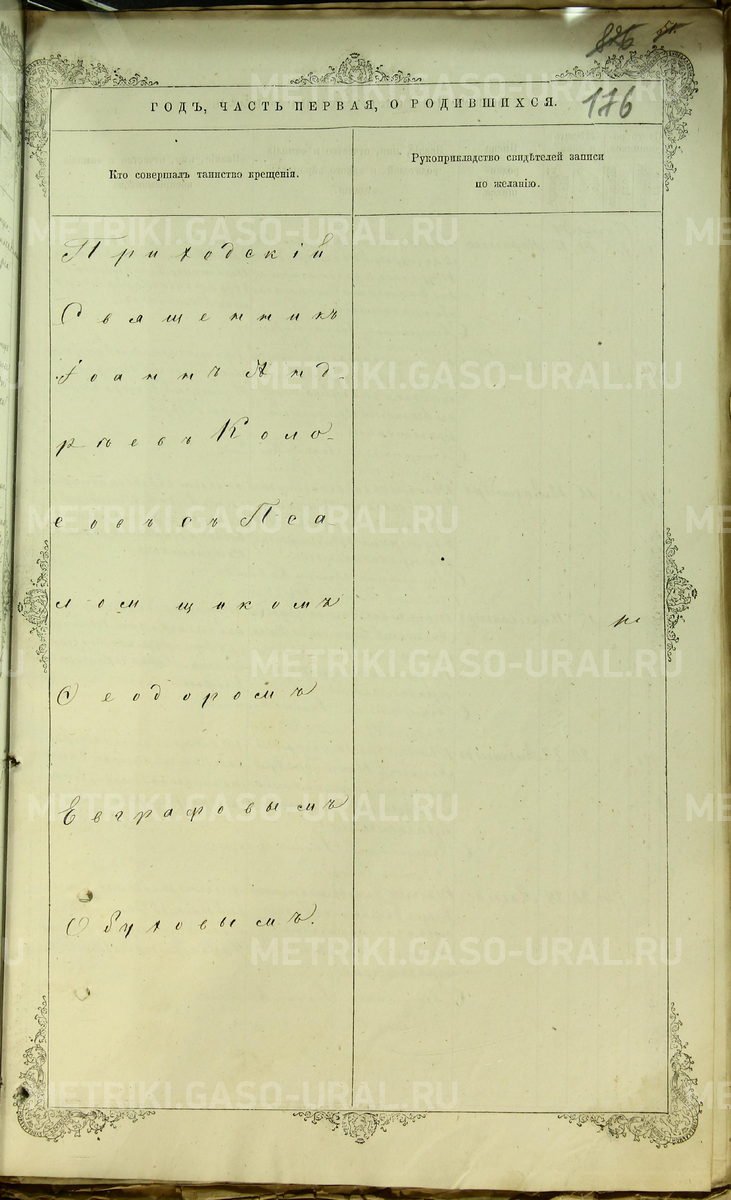 176
ГОДЪ, ЧАСТЬ ПЕРВАЯ, О РОДИВШИХСЯ.
Кто совершалъ таинство крещенія.
Рукоприкладство свидѣтелей записи
по желанію.
Приходскій
Священникъ
Іоаннъ Анд-
рѣевъ Коло-
совъ съ Пса-
ломщикомъ
Ѳеодоромъ
Евграфовымъ
Обуховымъ.
METRIKI.GASO-URAL.RU